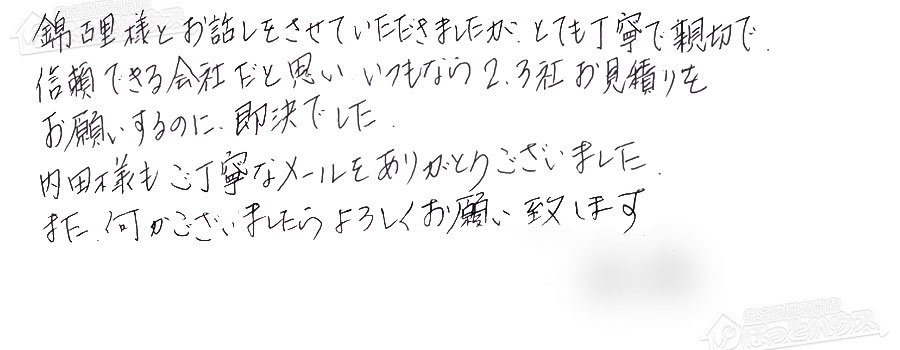 錦古里様とお話しをさせていただきましたが、とても丁寧で親切で
信頼できる会社だと思い いつもなら2.3社お見積りを
お願いするのに、即決でした.
内田様もご丁寧なメールをありがとうございました.
また、何かございましたらよろしくお願い致します
ほっとハウス